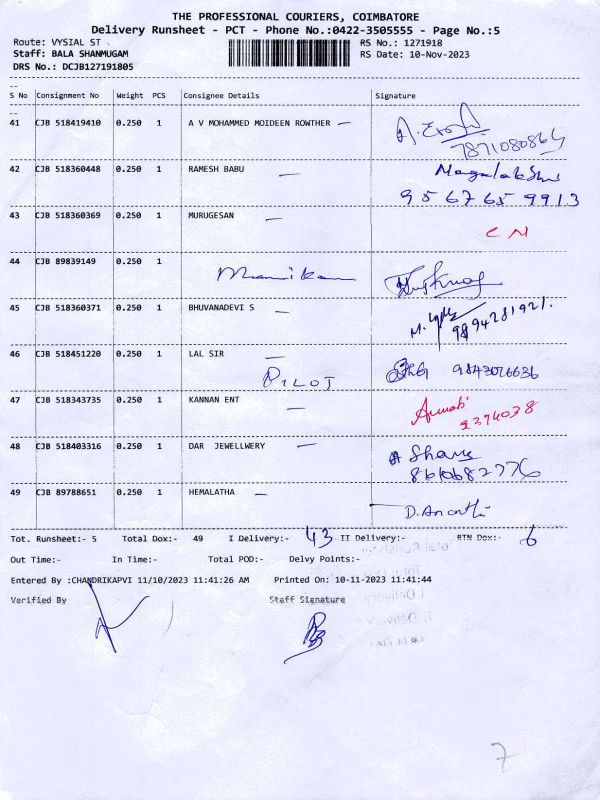 THE PROFESSIONAL COURIERS, COIMBATORE
Delivery Runsheet - PCT - Phone No.:0422-3505555 - Page No.:5
Route: VYSIAL ST RS No.: 1271918
Staff: BALA SHANMUGAM RS Date: 10-Nov-2023
DRS No.: DCJB127191805
S No Consignment No Weight PCS Consignee Details Signature
41 CJB 518419410 0.250 1 A V MOHAMMED MOIDEEN ROWTHER —
7871080864
42 CJB 518360448 0.250 1 RAMESH BABU —
9567659913
43 CJB 518360369 0.250 1 MURUGESAN — CN
44 CJB 89839149 0.250 1
Manikam
45 CJB 518360371 0.250 1 BHUVANADEVI S —
9894281921.
46 CJB 518451220 0.250 1 LAL SIR —
PILOT 9843016636
47 CJB 518343735 0.250 1 KANNAN ENT —
2394038
48 CJB 518403316 0.250 1 DAR JEWELLWERY —
8610682776
49 CJB 89788651 0.250 1 HEMALATHA —
Tot. Runsheet:- 5 Total Dox:- 49 I Delivery:- 43 II Delivery:- RTN Dox:- 6
Out Time:- In Time:- Total POD:- Delvy Points:-
Entered By :CHANDRIKAPVI 11/10/2023 11:41:26 AM Printed On: 10-11-2023 11:41:44
Verified By Staff Signature
7